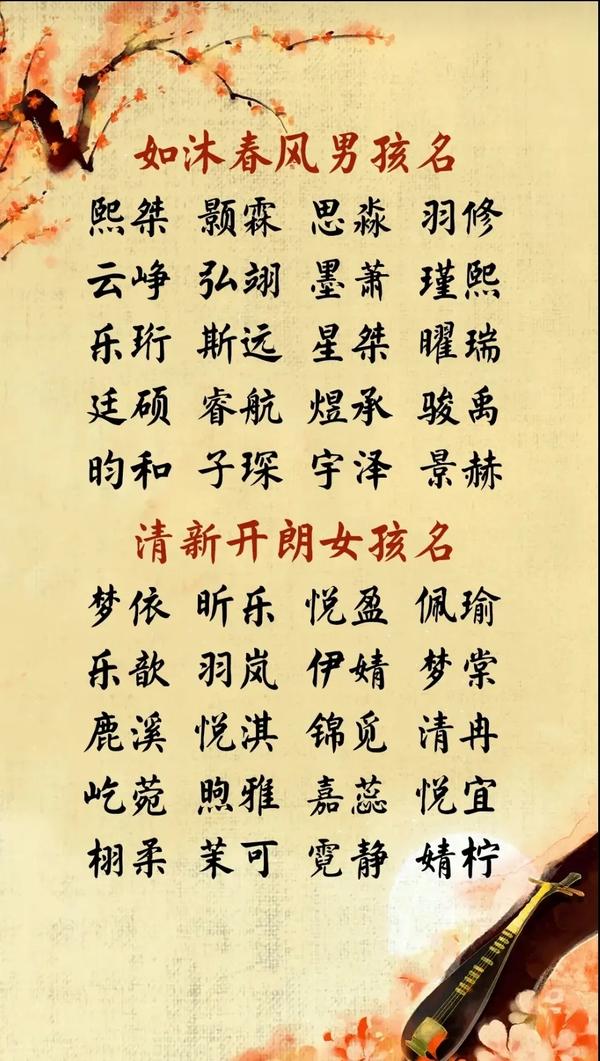 如沐春风男孩名
熙桀 颢霖 思淼 羽修
云峥 弘翊 墨萧 瑾熙
乐珩 斯远 星桀 曜瑞
廷硕 睿航 煜承 骏禹
昀和 子琛 宇泽 景赫
清新开朗女孩名
梦依 昕乐 悦盈 佩瑜
乐歆 羽岚 伊婧 梦棠
鹿溪 悦淇 锦觅 清冉
屹菀 煦雅 嘉蕊 悦宜
栩柔 茉可 霓静 婧柠